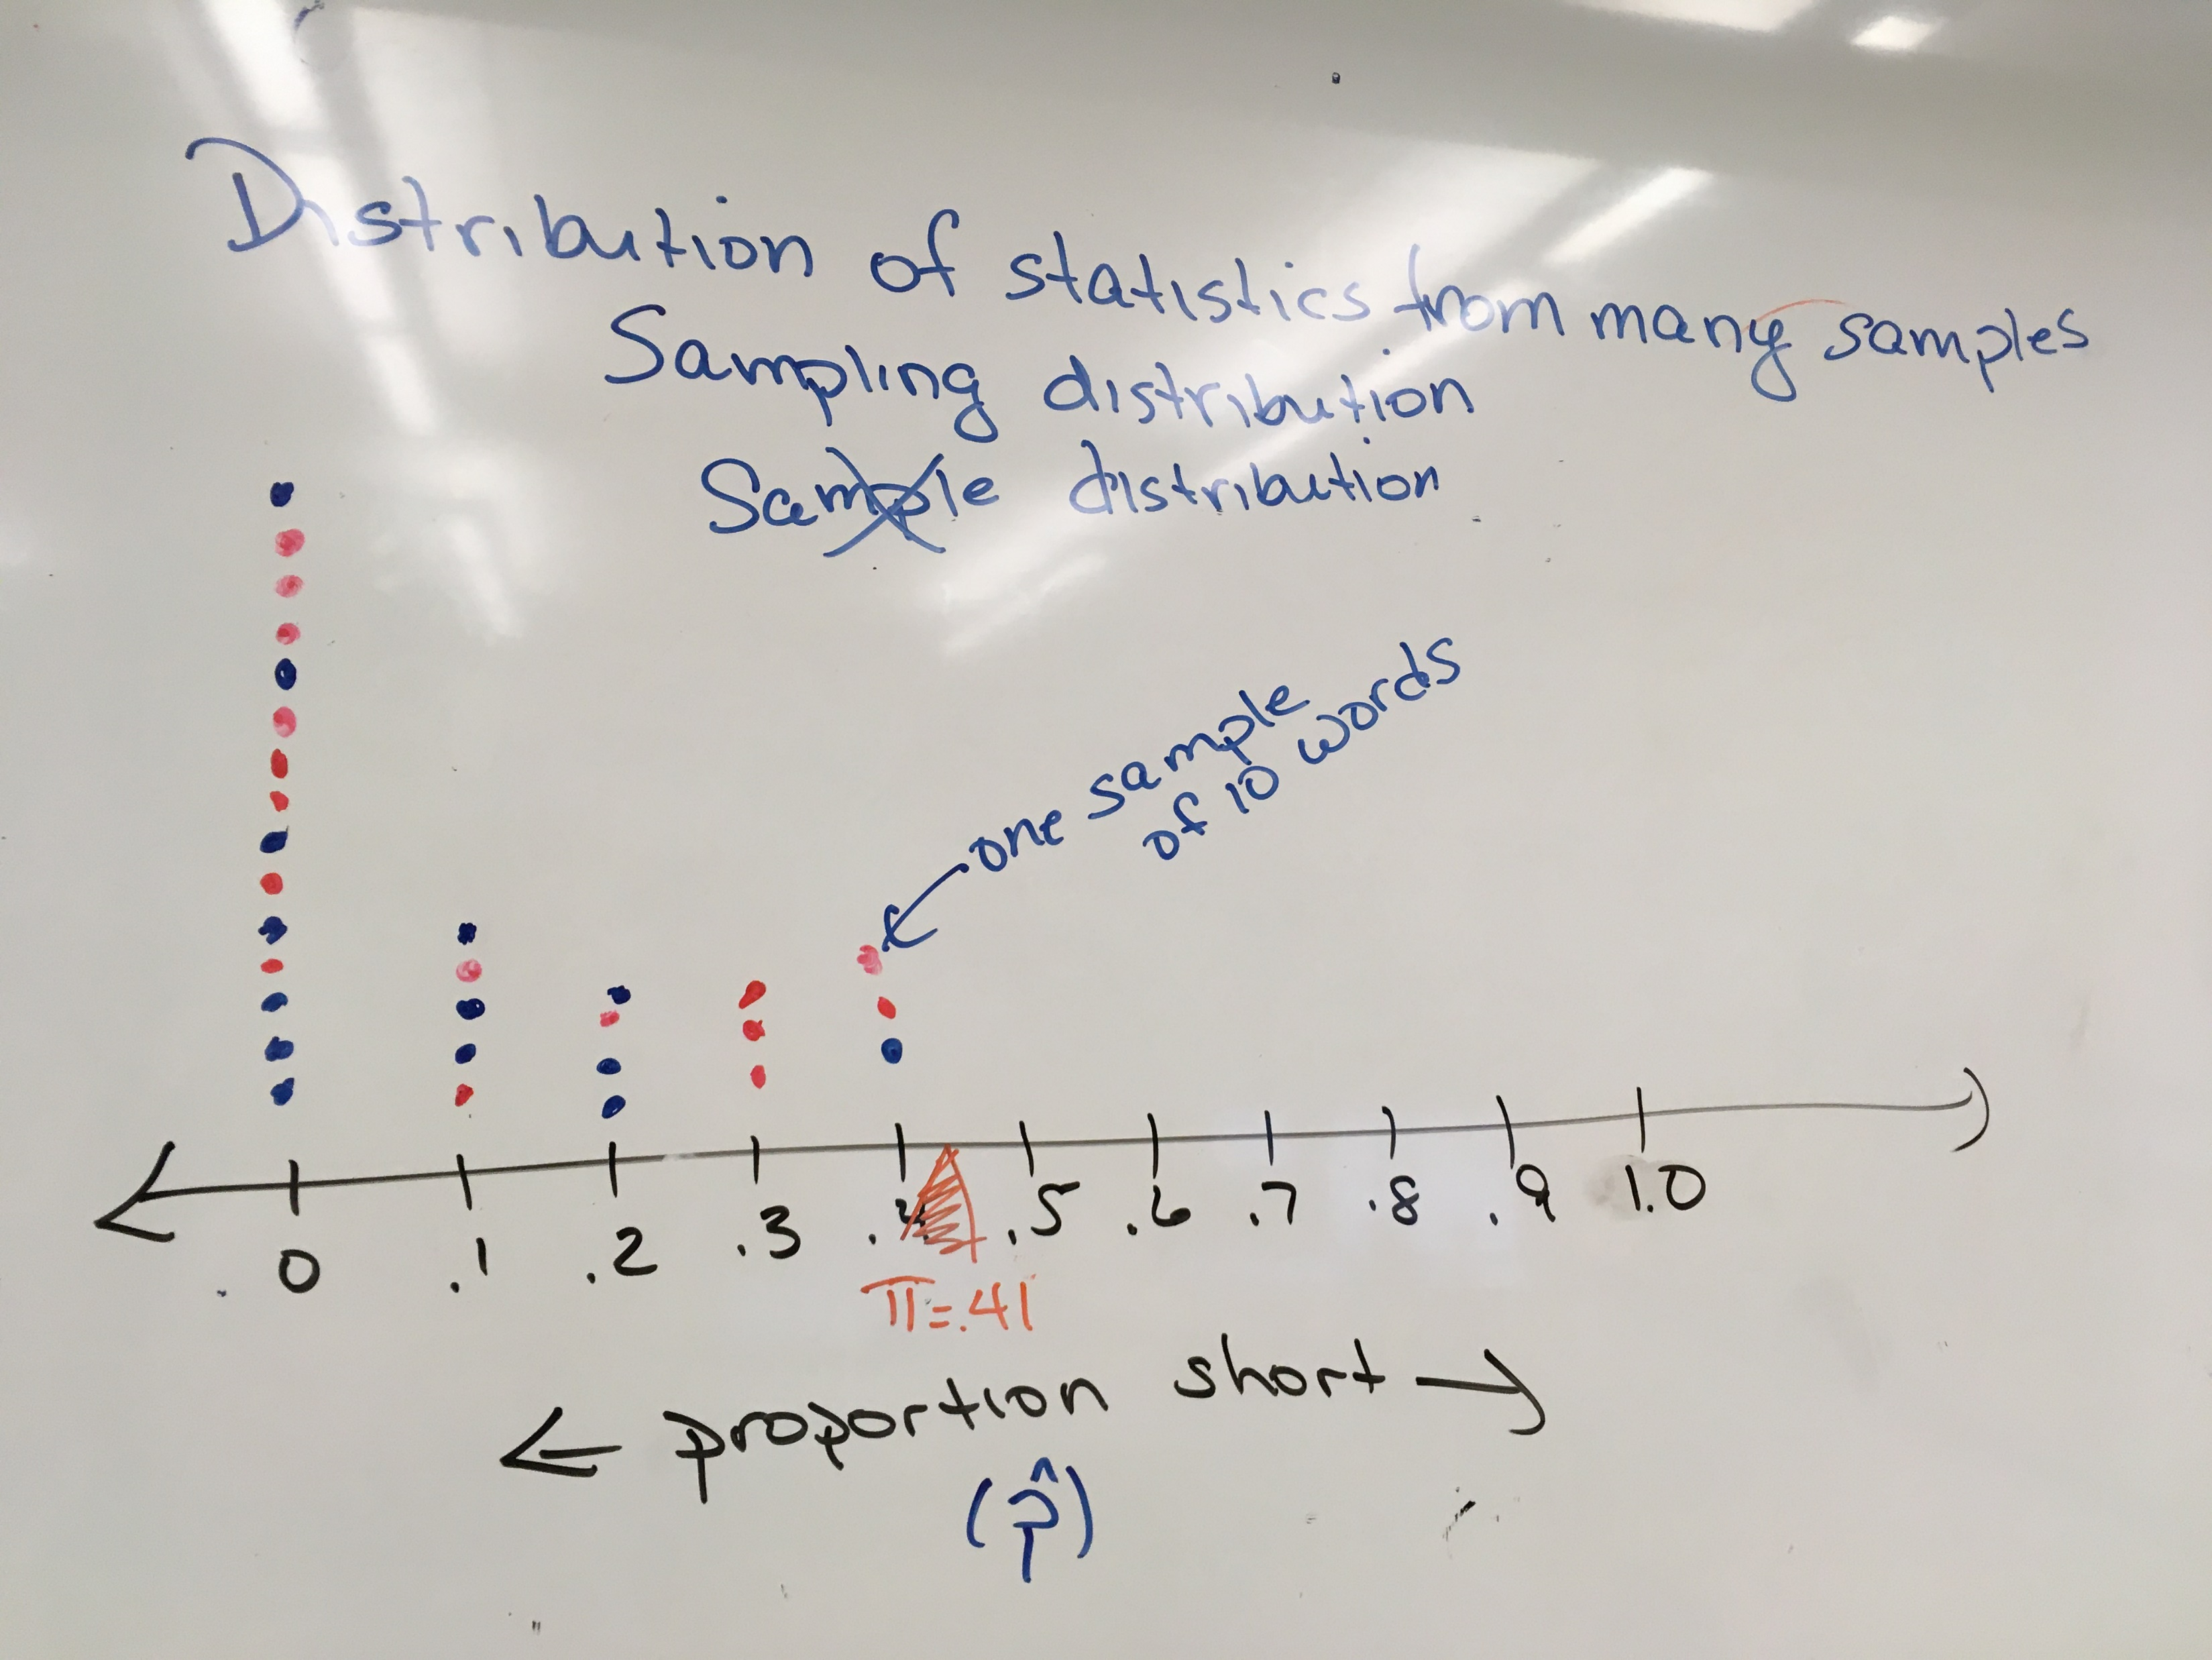 Distribution of statistics from many samples
Sampling distribution
Sample distribution
one sample
of 10 words
0 .1 .2 .3 .4 .5 .6 .7 .8 .9 1.0
π=.41
← proportion short →
(p̂)